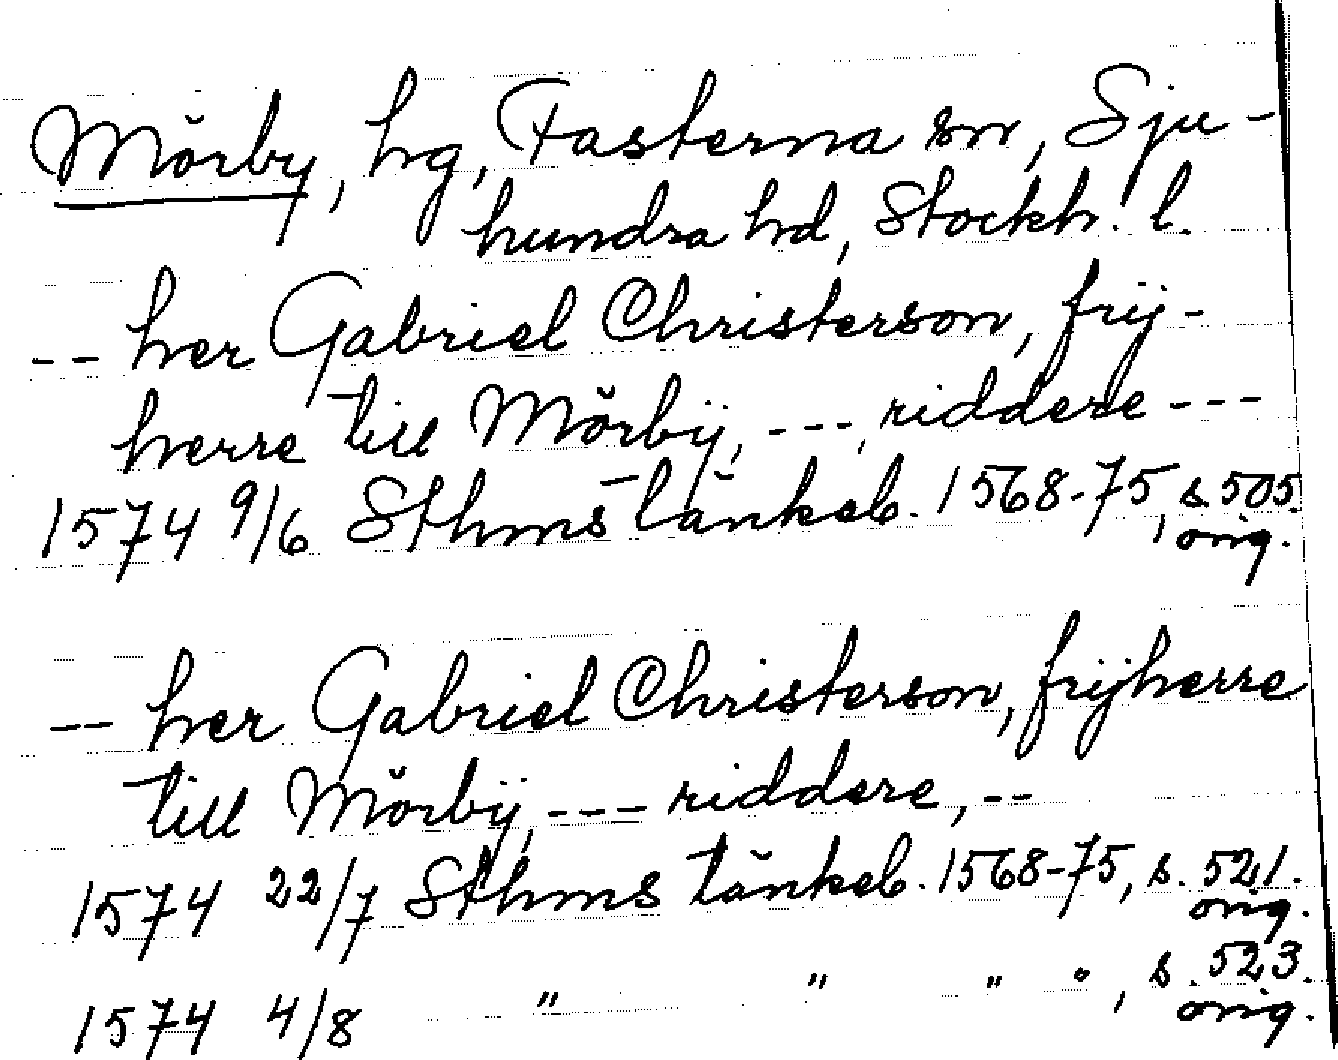 Mörby, hg, Fasterna sn, Sju-
hundra hd, Stockh. l.
-- her Gabriel Christerson, frij-
herre till Mörbÿ, ---, riddere ---
1574 9/6 Sthms tänkeb. 1568-75, s. 505.
orig.
-- her Gabriel Christerson, frijherre
till Mörbÿ, --- riddere, --
1574 22/7 Sthms tänkeb. 1568-75, s. 521.
orig.
1574 4/8 " " " ", s. 523.
orig.